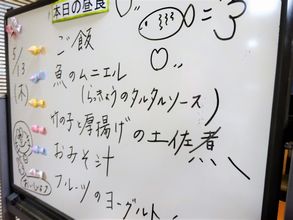 本日の昼食
5/13
(木)
ご飯
魚のムニエル
(らっきょうのタルタルソース)
竹の子と厚揚げの土佐煮
おみそ汁
フルーツのヨーグルト